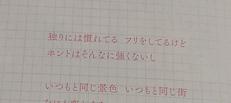 独りには慣れてる フリをしてるけど
ホントはそんなに強くないし
いつもと同じ景色 いつもと同じ街